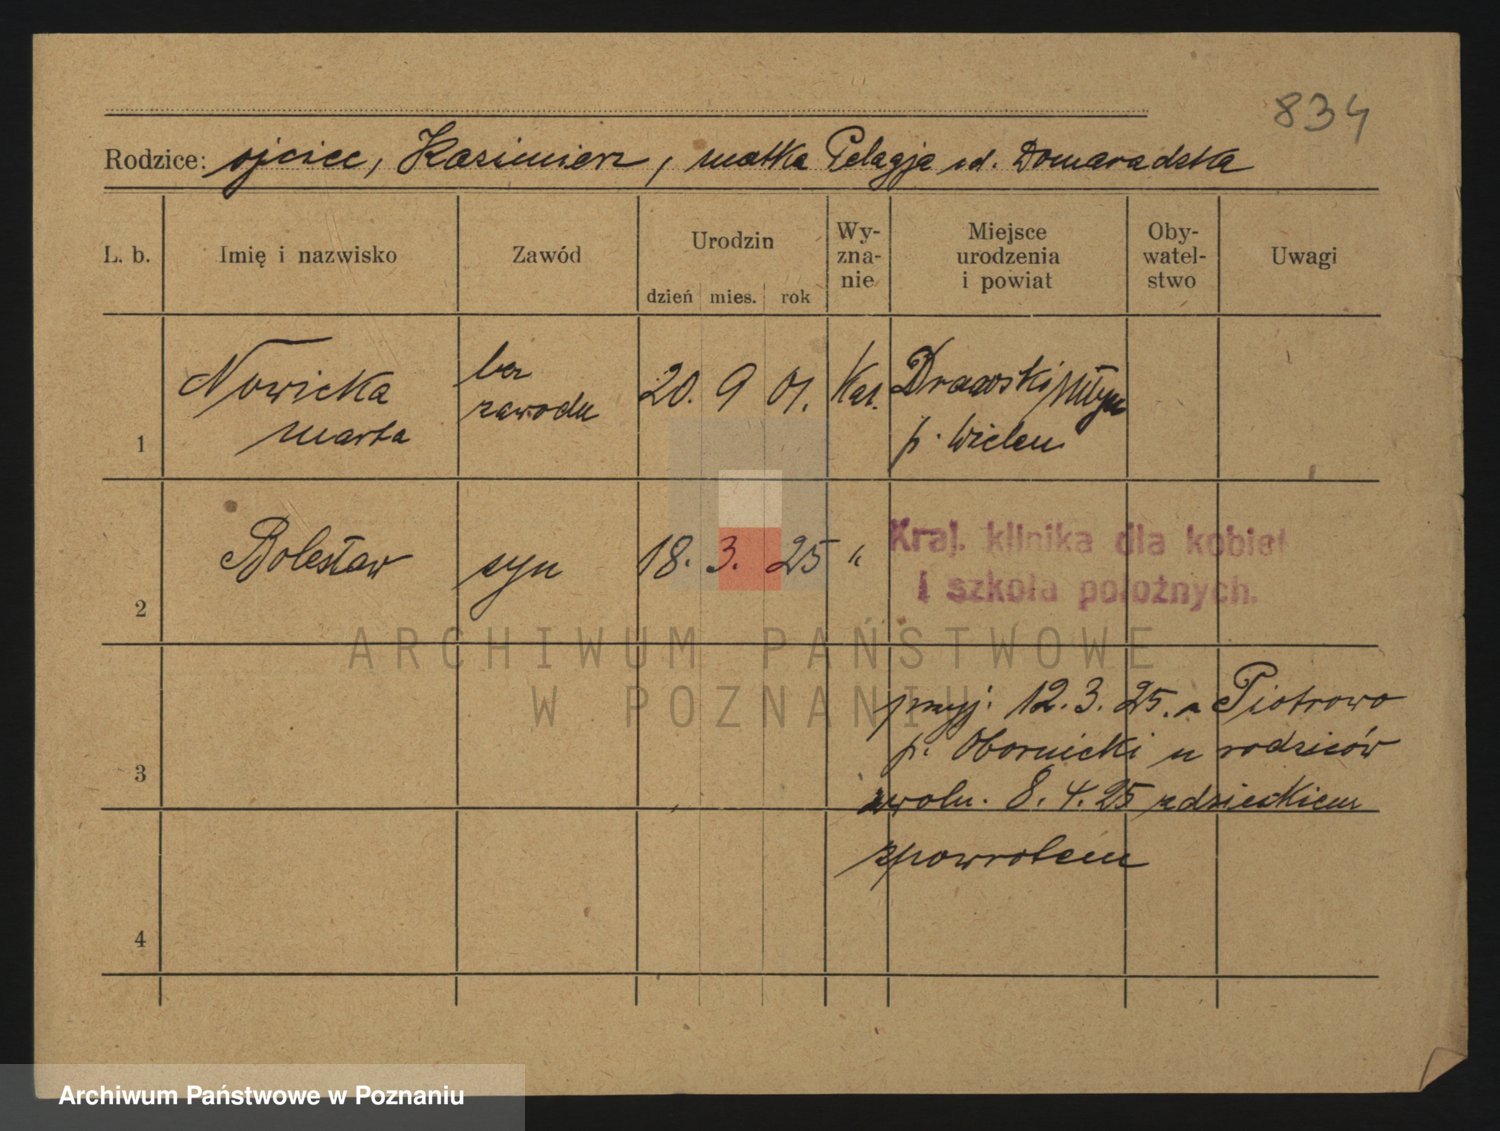 834
Rodzice: ojciec, Kazimierz, matka Pelagja zd. Domaradzka
L. b. Imię i nazwisko Zawód Urodzin Wy-zna-nie Miejsce urodzenia i powiat Oby-watel-stwo Uwagi
dzień mies. rok
Nowicka bez 20. 9 01. Kat. Drawski Młyn
1 Marta zawodu p. Wieleń
Bolesław syn 18. 3. 25 " Kraj. klinika dla kobiet
2 i szkoła położnych.
ARCHIWUM PAŃSTWOWE
W POZNANIU
przyj. 12.3.25. z Piotrowo
p. Obornicki u rodziców
3
zwoln. 8.4.25 z dzieckiem
zpowrotem
4
Archiwum Państwowe w Poznaniu